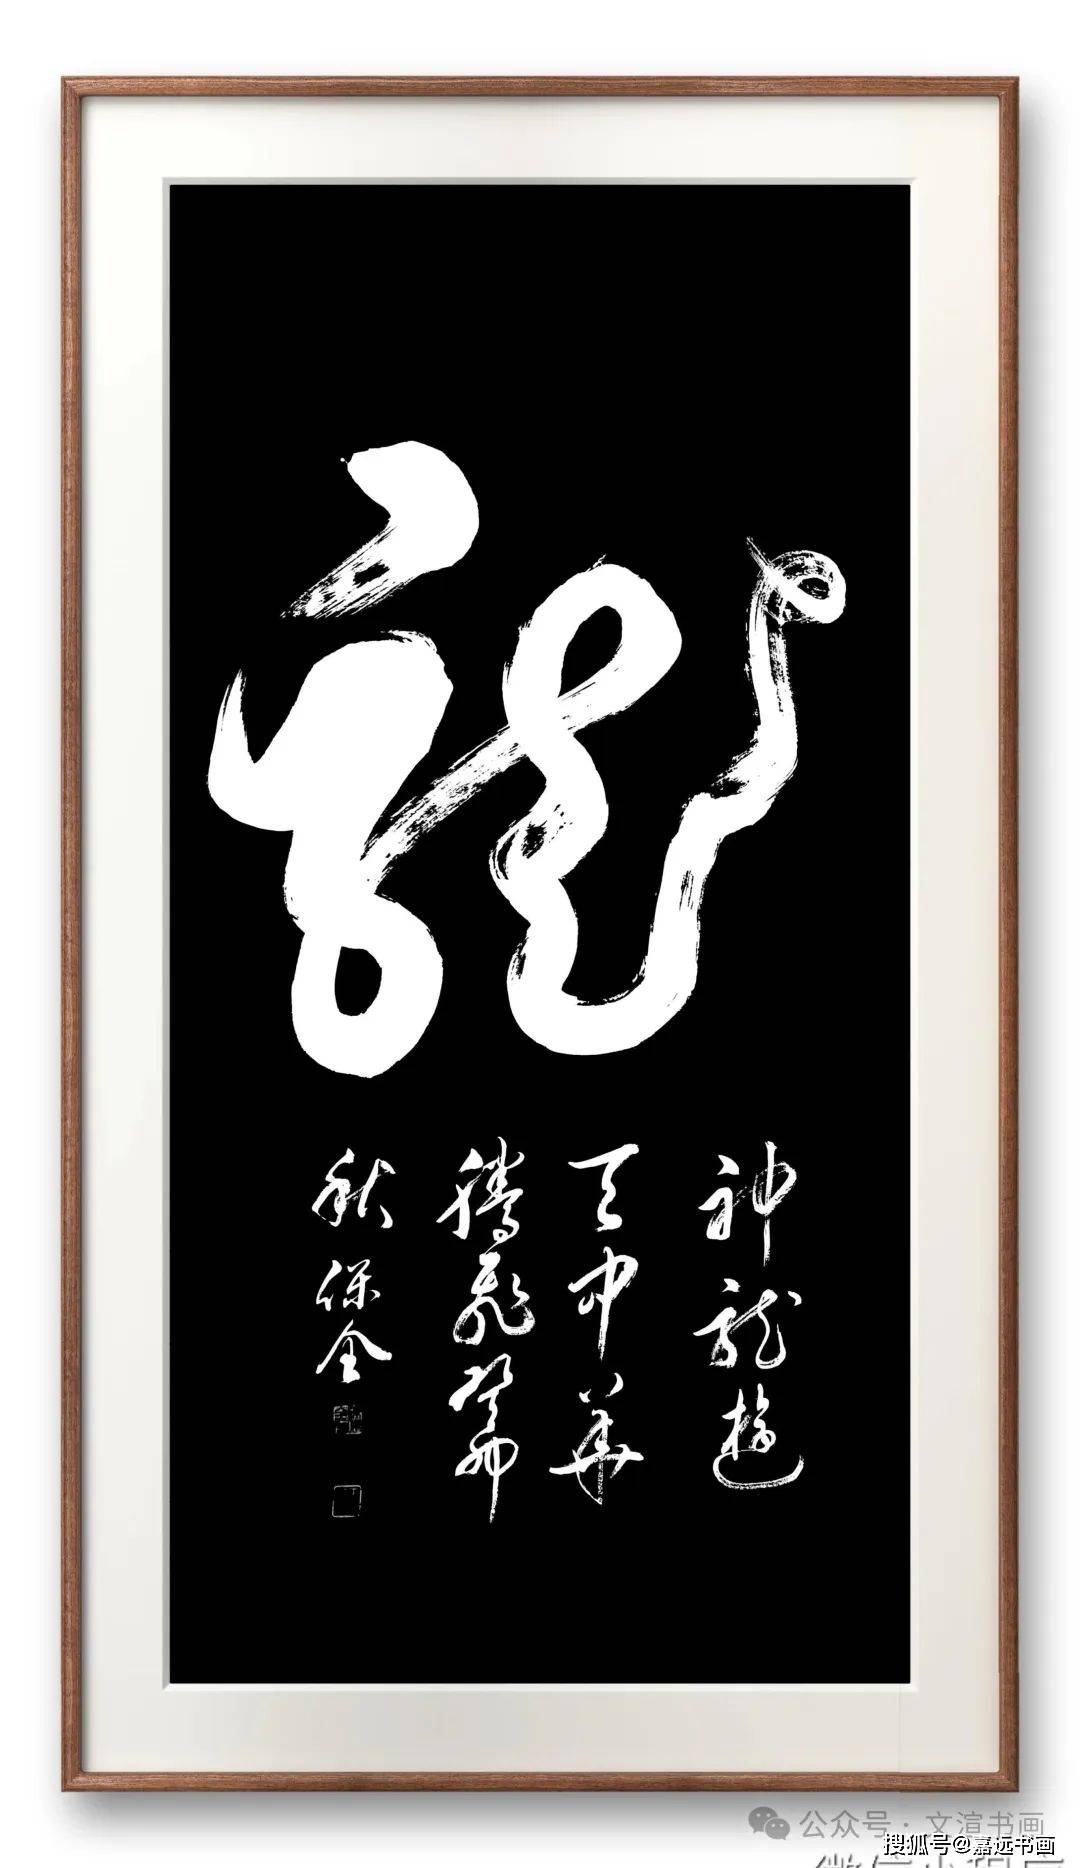 龍
神龍遊
天中華
騰飛癸卯
秋保全
公众号·文渲书画
搜狐号@嘉远书画